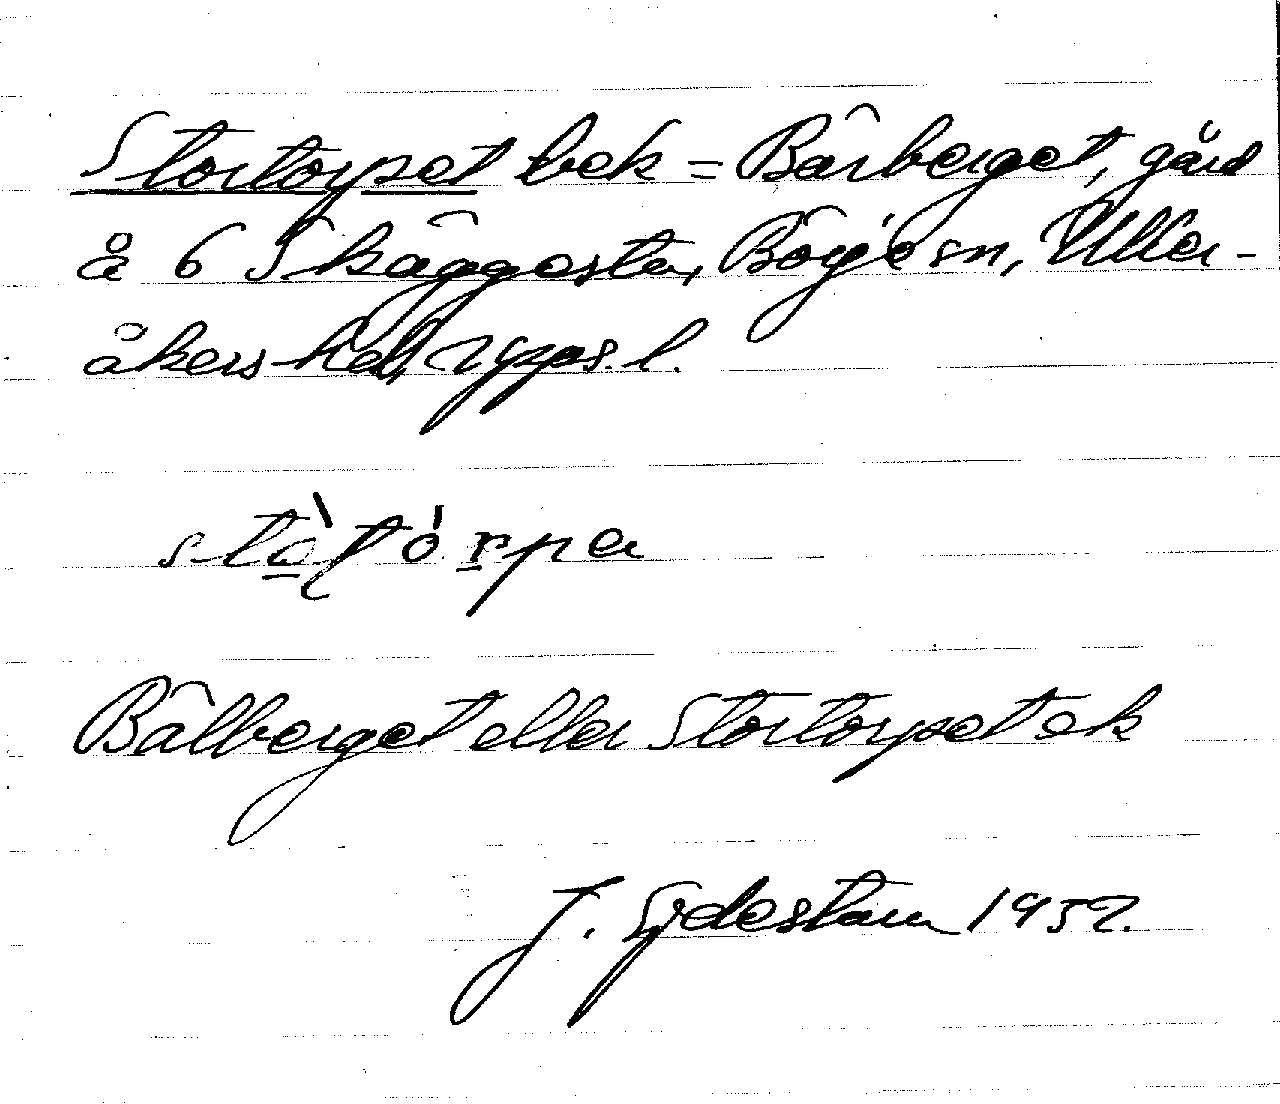 Stortorpet bek = Bârberget, gård
å 6 Skäggesta, Börje sn, Uller-
åkers hd, Upps. l.
Bâlberget eller Stortorpet ek
J. Sydestam 1952.